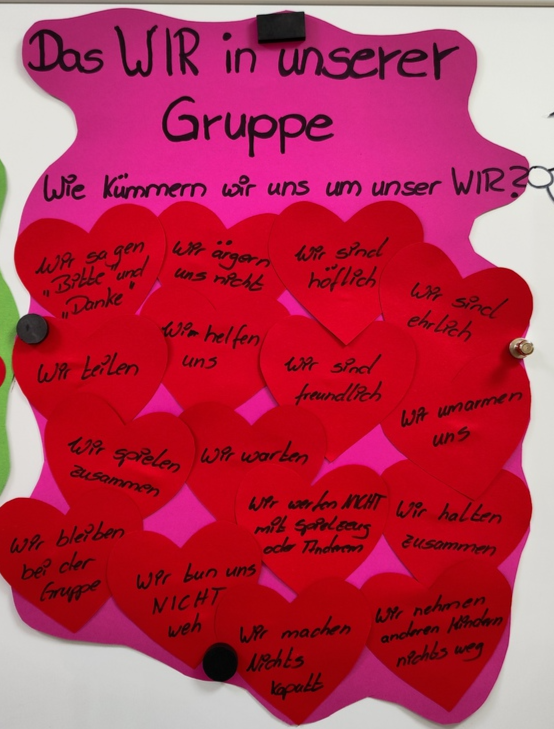 Das WIR in unserer
Gruppe
Wie Kümmern wir uns um unser WIR?
Wir sagen
"Bitte" und
"Danke"
Wir ärgern
uns nicht
Wir sind
höflich
Wir sind
ehrlich
Wir teilen
Wir helfen
uns
Wir sind
freundlich
Wir umarmen
uns
Wir spielen
zusammen
Wir warten
Wir werfen NICHT
mit Spielzeug
oder Anderem
Wir halten
zusammen
Wir bleiben
bei der
Gruppe
Wir tun uns
NICHT
weh
Wir machen
Nichts
kaputt
Wir nehmen
anderen Kindern
nichts weg